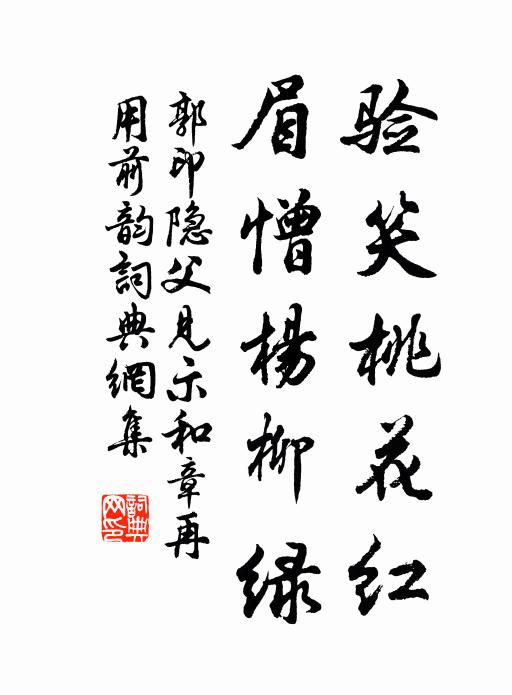 验笑桃花红
眉憎楊柳绿
郭印隐父見示和章再
用前韵詞典網集
詞典网印